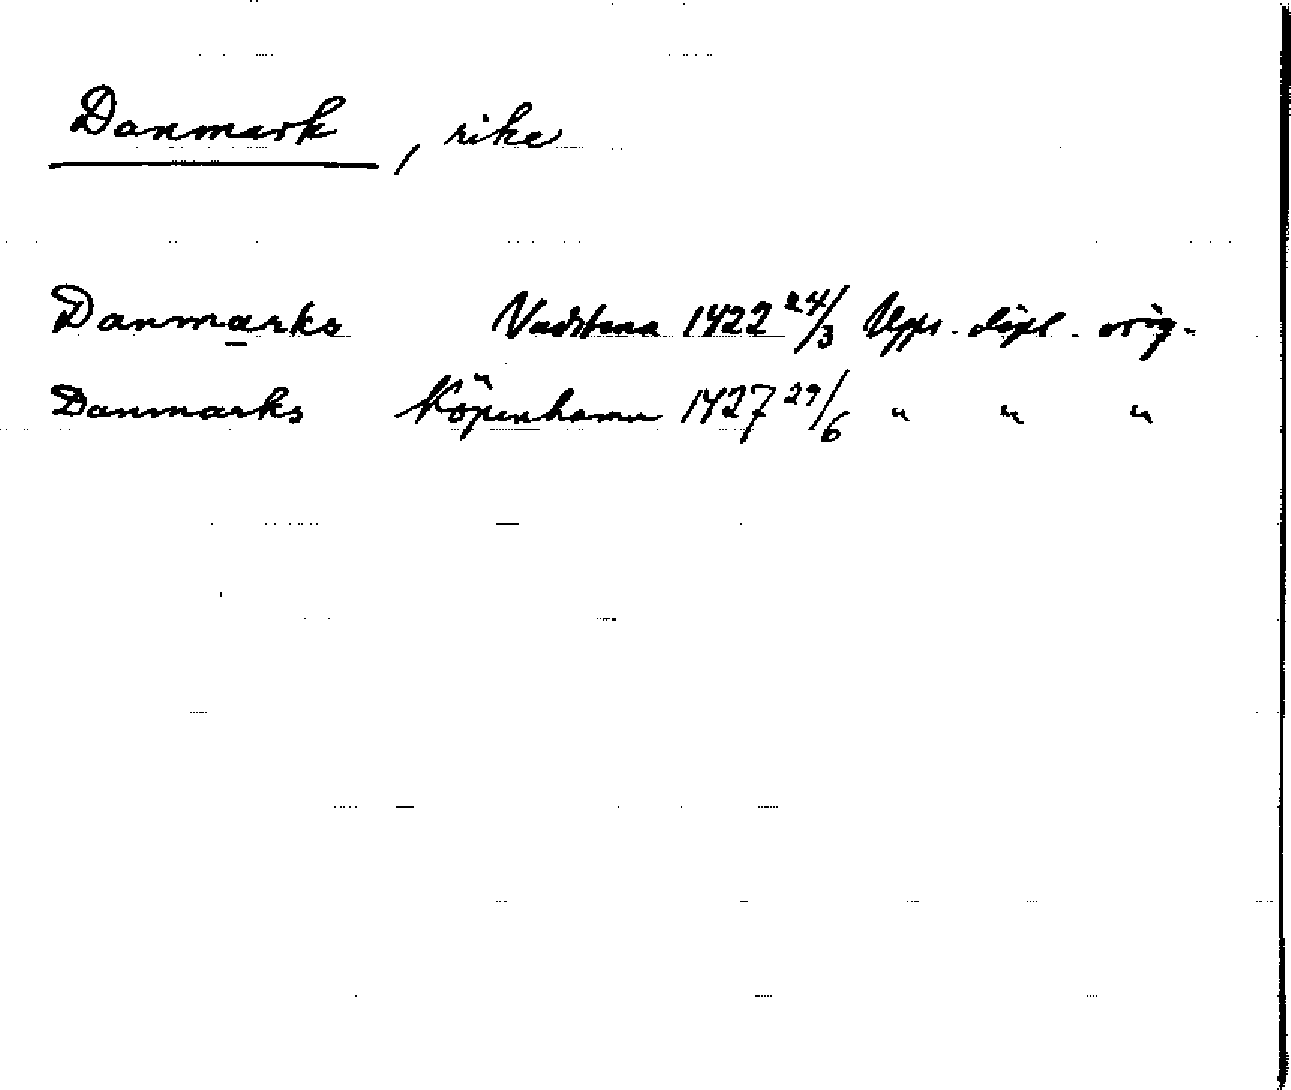 Danmark, rike
Danmarks Vadstena 1422 24/3 Upps. dipl. orig.
Danmarks Köpenhamn 1427 29/6 " " "